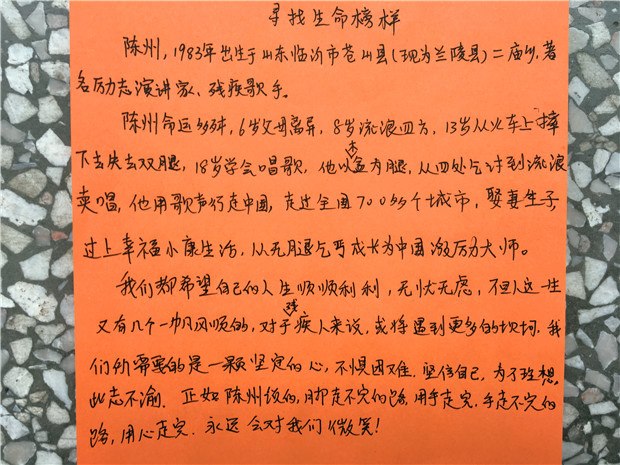 寻找生命榜样
陈州，1983年出生于山东临沂市苍山县（现为兰陵县）二庙乡，著
名励志演讲家、残疾歌手。
陈州命运多舛，6岁父母离异，8岁流浪四方，13岁从火车上摔
下去失去双腿，18岁学会唱歌，他以木盒为腿，从四处乞讨到流浪
卖唱，他用歌声行走中国，走过全国700多个城市，娶妻生子，
过上幸福小康生活，从无腿乞丐成长为中国激励大师。
我们都希望自己的人生顺顺利利，无忧无虑，但人这一生
又有几个一帆风顺的，对于残疾人来说，或将遇到更多的坎坷。我
们所需要的是一颗坚定的心，不惧困难，坚信自己，为了理想，
此志不渝。正如陈州做的，脚走不完的路，用手走完，手走不完的
路，用心走完。永远会对我们微笑！